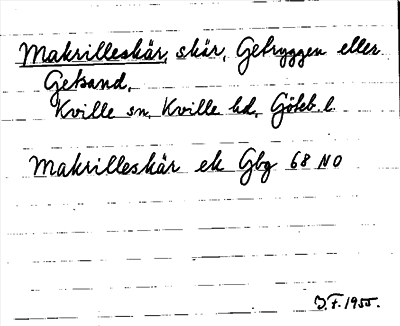 Makrilleskär, skär, Getryggen eller
Getsand,
Kville sn, Kville hd, Göteb. l.
Makrilleskär ek Gbg 68 NO
J.F. 1955.